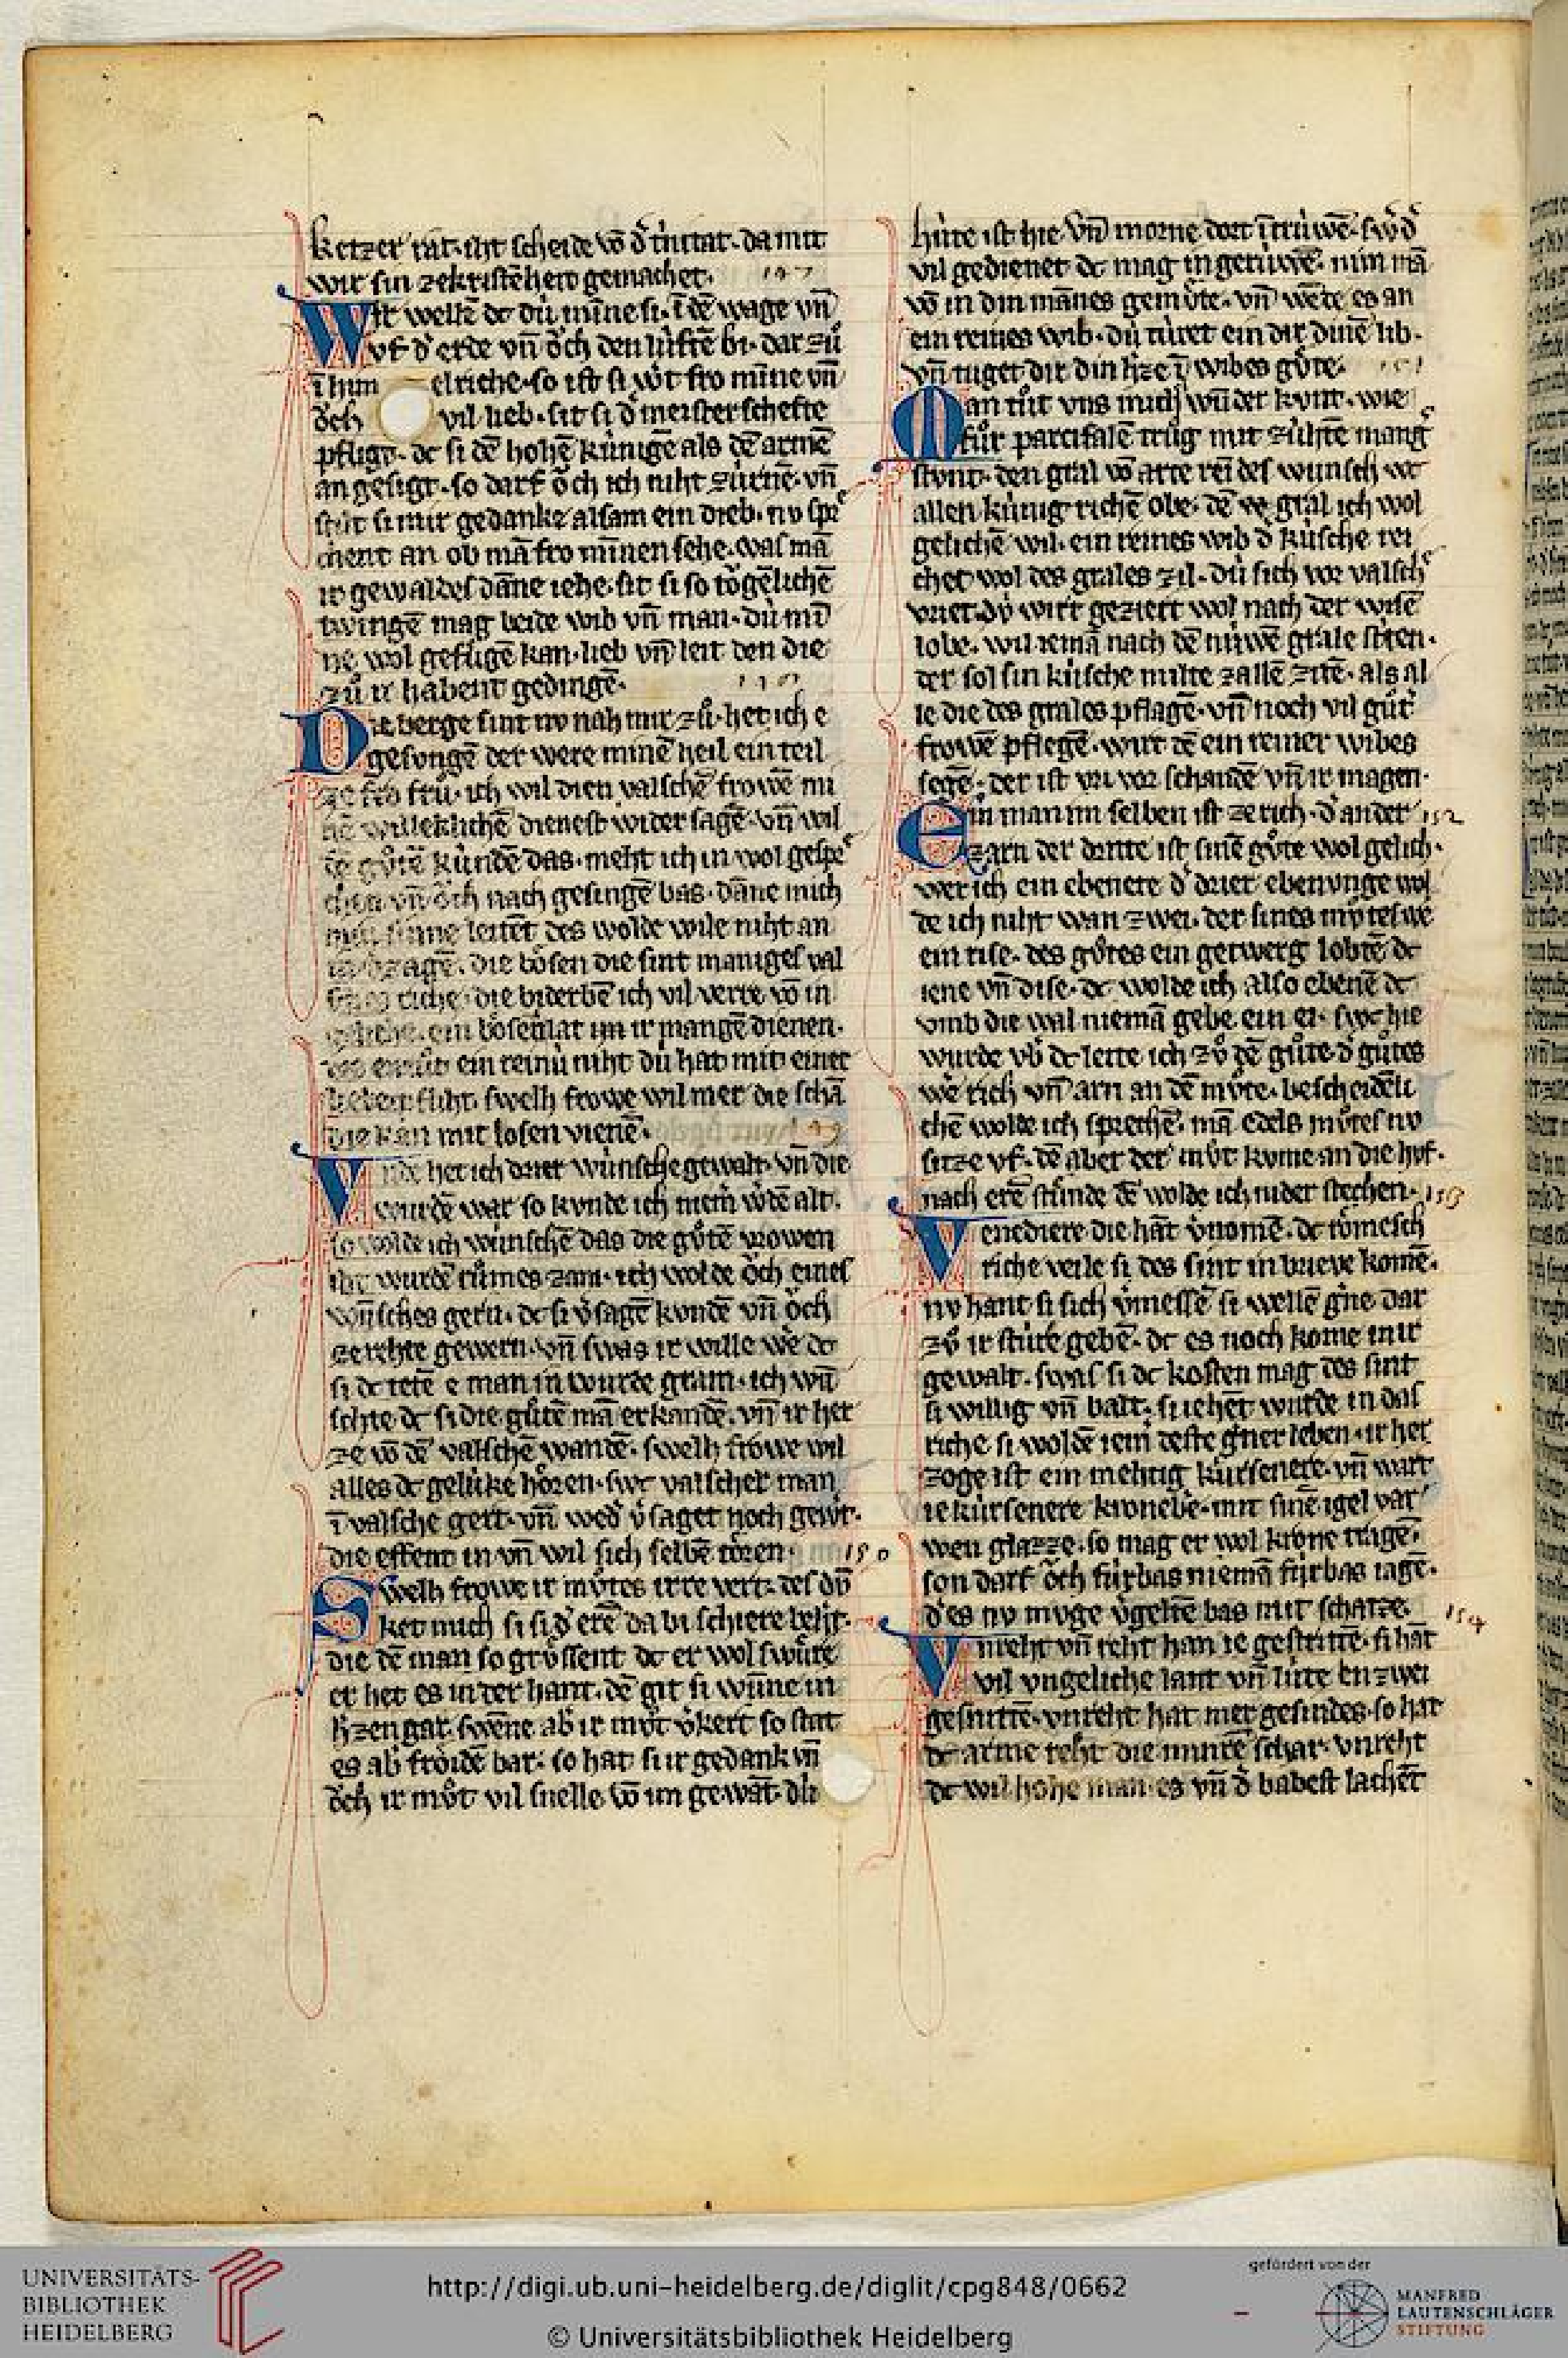 ketzer rat. iht scheide vō d̄ trinitat. da mit
wir sin ze kristēheit gemachet. 147
Wir wellē dc dú mīne si. ī dē wage vn̄
vf d̓ erde vn̄ ǒch den lúftē bi. dar zů
ī him elriche. so ist si w̓t fro mīne vn̄
ǒch vil lieb. sit si d̓ meisterschefte
pfligt. dc si dē hohē kúnigē als dē armē
an gesigt. so darf ǒch ich niht zúrnē. vn̄
stilt si mir gedanke alsam ein dieb. nv spͤ
chent an ob mā fro mīnen sehe. was mā
ir gewaldes dāne iehe. sit si so tǒgēlichē
twingē mag beide wib vn̄ man. dú mī
ne wol gefúgē kan. lieb vn̄ leit den die
zů ir habent gedingē.
Die berge sint nv nah mir zů. het ich e
gesvngē der were minē heil ein teil
ze frů. ich wil dien valschē frowē mi
nē willeklichē dienest wider sagē. vn̄ wil
dē gůtē kúndē das. meht ich in wol gespͤ
chen vn̄ ǒch nach gesingē bas. dāne mich
min sinne leitēt des wolde wile niht an
in v̓zagē. die bǒsen die sint maniges val
sches riche. die biderbē ich vil verre vō in
geliche. ein bǒsewiht im ir mangē dienen.
ein reinú niht dú hat mit einer
liebem pfliht. swelh frowe wil mer die schā
die kan mit losen vienē. 149
Vnde het ich drier wúnsche gewalt. vn̄ die
wurdē war so kvnde ich niem̄ w̓dē alt.
so wolde ich wúnschē das die gůtē vrowen
iht wurdē rů̊mes zam. ich wolde ǒch eines
wūsches gern. dc si v̓sagē kondē vn̄ ǒch
ze rehte gewern. vn̄ swas ir wille we dc
si dc tetē e man in wurde gram. ich wū
schte dc si die gůtē mā erkandē. vn̄ ir her
ze vō dē valschē wandē. swelh frowe wil
alles dc gelúke hǒren. swc valscher man
ī valsche gert. vn̄ wed̓ v̓saget noch gew̓t.
die effent in vn̄ wil sich selbē tǒren. 150
Swelh frowe ir můtes irre vert. des dv̄
ket mich si si d̓ erē da bi schiere beh̓t.
die dē man so grůssent dc er wol swůre
er het es in der hant. dē git si wūne in
h̓zen gar. swēne ab̓ ir můt v̓kert so stat
es ab̓ frǒidē bar. so hat si ir gedank vn̄
ǒch ir můt vil snelle vō im gewāt. dú
húte ist hie vn̄ morne dort ī trúwē. sw̓ d̓
vil gedienet dc mag in gerúwē. nim mā
vō in din mannes gemůte. vn̄ wēde es an
ein reines wib. dú túret ein dir dinē lib.
vn̄ tuget dir din h̓ze ī wibes gůte. 151
Man tůt vns mich wūder kvnt. wie
fúr parcifalē trůg mit zúhtē mangͤ
stvnt. den gral vō arte rei des wunsch wc
allen kúnig richē obe. dē ve gral ich wol
gelichē wil. ein reines wib d̓ kúsche rei
chet wol des grales zil. dú sich vor valschͤ
vriet. dv̓ wirt geziert wol nach der wisē
lobe. wil iemā nach dē núwē grale striten.
der sol sin kúsche milte zallē zitē. als al
ie die des grales pflagē. vn̄ noch vil gůt̓
frowē pflegē. wirt dē ein reiner wibes
segē. der ist vri vor schandē vn̄ ir magen.
Ein man im selben ist ze rich. d̓ ander 152
ze arn der dritte ist sinē gůte wol gelich.
wer ich ein ebenere d̓ drier ebenvnge wol
de ich niht wan zwei. der sines můtes we
ein rise. des gůtes ein getwerg lobtē dc
iene vn̄ dise. dc wolde ich also ebenē dc
vmb die wal niemā gebe ein ei. swc hie
wurde vb̓ dc leite ich zů dē gůte. d̓ gůtes
we rich vn̄ arn an dē můte. bescheidēli
chē wolde ich sprechē. mā edels můtes nv
sitze vf. dē aber der můt kome an die hvf.
nach erē stůnde dē wolde ich nider stechen. 153
Venediere die hāt v̓nomē. dc rǒmesch
riche veile si des sint in brieve komē.
nv hant si sich v̓messē si wellē g̓ne dar
zů ir stúre gebē. dc es noch kome in ir
gewalt. swas si dc kosten mag des sint
si willig vn̄ balt. si iehēt wurde in das
riche si woldē iem̄ deste g̓ner leben. ir her
zoge ist ein mehtig kúrsenere. vn̄ wart
ie kúrsenere kronebe. mit sinē igel var
wen glazze. so mag er wol krone tragē.
son darf ǒch fúrbas niemā fúrbas iagē.
d̓ es nv muge v̓geltē bas mit schatze. 154
Vnreht vn̄ reht han ie gestrittē. si hāt
vil vngeliche lant vn̄ lúte enzwei
gesnittē. vnreht hat mer gesindes. so hat
dc arme reht die minrē schar. vnreht
dc wil hohe man es vn̄ d̓ babest lachēt
UNIVERSITÄTS-
BIBLIOTHEK
HEIDELBERG
http://digi.ub.uni-heidelberg.de/diglit/cpg848/0662
© Universitätsbibliothek Heidelberg
gefördert von der
MANFRED
LAUTENSCHLÄGER
STIFTUNG